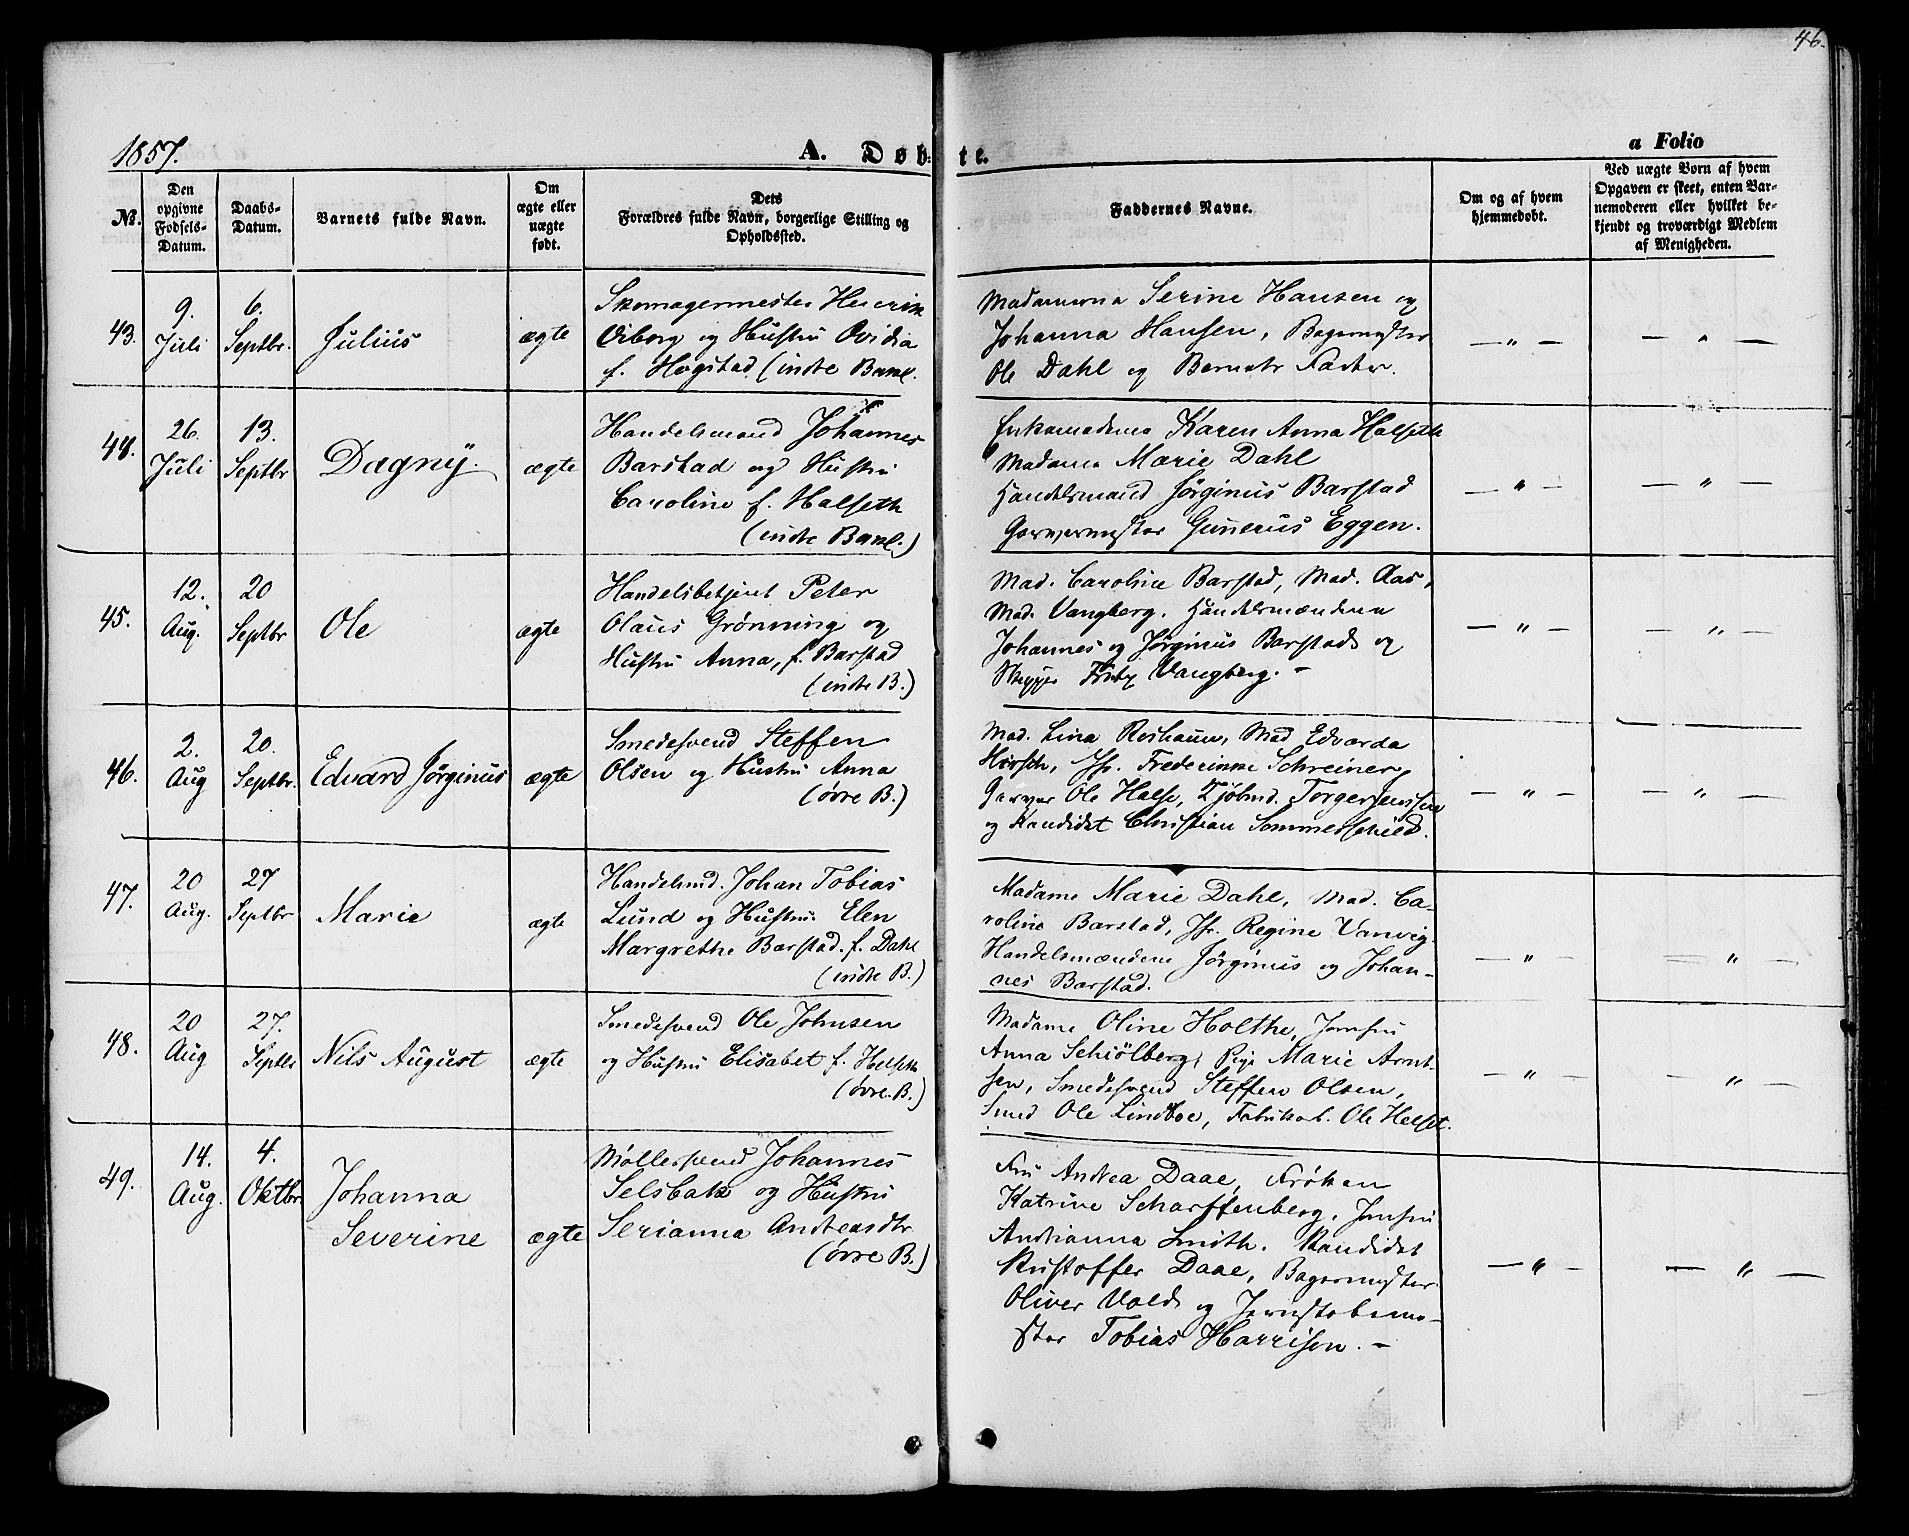 46.
1857.
A. Døb-
te.
a Folio
No.
Den opgivne Fødsels-Datum.
Daabs-Datum.
Barnets fulde Navn.
Om ægte eller uægte født.
Dets Forældres fulde Navn, borgerlige Stilling og Opholdssted.
Faddernes Navne.
Om og af hvem hjemmedøbt.
Ved uægte Børn af hvem Opgaven er skeet, enten Barnemoderen eller hvilket bekjendt og troværdigt Medlem af Menigheden.
43.
9. Juli
6. Septbr.
Julius
ægte
Skomagermester Henrik
Viborg og Hustru Ovidia
f. Hogstad (indre Bakl.
Madamerna Serine Hansen og
Johanna Hansen, Bagermester
Ole Dahl og Barnets Fader.
— " —
— " —
44.
26. Juli
13. Septbr
Dagny.
ægte
Handelsmand Johannes
Barstad og Hustru
Caroline f. Halseth
(indre Bakl.)
Enkemadame Karen Anna Halseth
Madame Marie Dahl
Handelsmand Jørginus Barstad
Garvermester Gunerus Eggen.
— " —
— " —
45.
12. Aug.
20 Septbr
Ole
ægte
Handelsbetjent Peter
Olaus Grønning og
Hustru Anna, f. Barstad
(indre B.)
Mad. Caroline Barstad, Mad. Aas,
Mad. Vangberg. Handelsmændene
Johannes og Jørginus Barstad og
Skipper Vangberg. –
— " —
— " —
46.
2. Aug
20. Septbr.
Edvard Jørginus
ægte
Smedesvend Steffen
Olsen og Hustru Anna
(øvre B.)
Mad. Lina Roshaun, Mad Edvarda
Hirsch, Jfr. Frederikke Schreiner,
Garver Ole Halse, Kjøbmd. Torger Jenssen
og Kandidat Christian Sommerschild.
— " —
— " —
47.
20 Aug.
27 Septbr
Marie
ægte
Handelsmd. Johan Tobias
Lund og Hustru Elen
Margrethe Barstad. f. Dahl
(indre B.)
Madame Marie Dahl, Mad. Ca-
roline Barstad, Jfr. Regine Vanvig.
Handelsmændene Jørginus og Johan-
nes Barstad.
— " —
— " —
48.
20 Aug
27. Septbr
Nils August
ægte
Smedesvend Ole Johnsen
og Hustru Elisabet f. Helseth
(øvre B.)
Madame Oline Holthe, Jomfru
Anna Schiölberg, Pige Marie Arnt-
sen, Smedesvend Steffen Olsen,
Smed Ole Lindboe, Fabrikarb. Ole Helset.
— " —
— " —
49.
14. Aug.
4. Oktbr.
Johanna
Severine
ægte
Møllersvend Johannes
Selsbak og Hustru
Serianna Andreasdtr
(øvre B.)
Fru Andrea Daae, Frøken
Katrine Scharffenberg, Jomfru
Andrianna Smith. Kandidat
Kristoffer Daae, Bagermester
Oliver Vold og Jernstøbeme-
ster Tobias Harrison. –
— " —
— " —